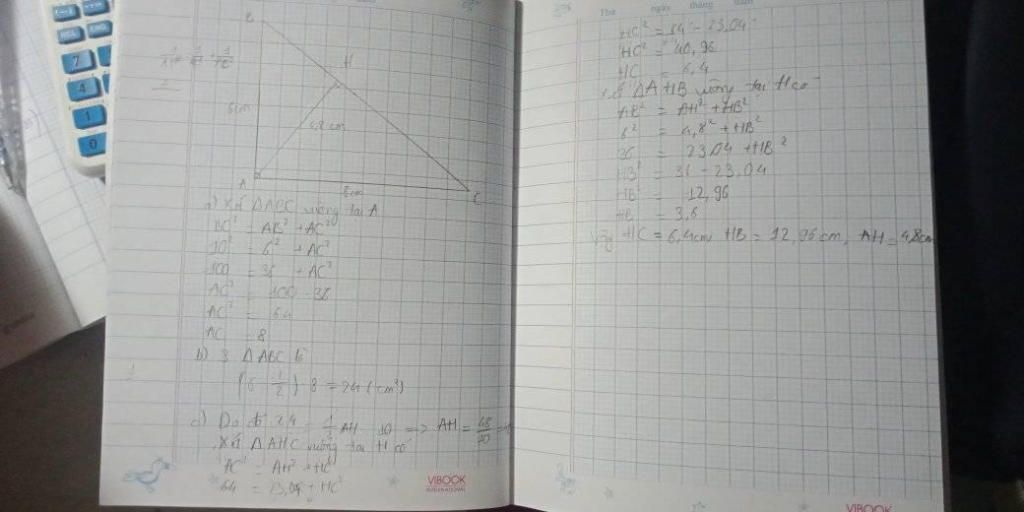 B
H
6cm
4,8 cm
A
8cm
C
a) Xét ΔABC vuông tại A
BC² = AB² + AC²
10² = 6² + AC²
100 = 36 + AC²
AC² = 100 - 36
AC² = 64
AC = 8
b) S ΔABC là
(6 · 1/2) · 8 = 24 (cm²)
c) Do đó 24 = 1/2 AH · 10 => AH = 48/10
Xét ΔAHC vuông tại H có
AC² = AH² + HC²
64 = 23,04 + HC²
VIBOOK
Thứ ngày tháng năm
HC² = 64 - 23,04
HC² = 40,96
HC = 6,4
Xét ΔAHB vuông tại H có
AB² = AH² + HB²
6² = 4,8² + HB²
36 = 23,04 + HB²
HB² = 36 - 23,04
HB² = 12,96
HB = 3,6
Vậy HC = 6,4cm HB = 12,96 cm, AH = 4,8cm
VIBOOK
7
4
1
0